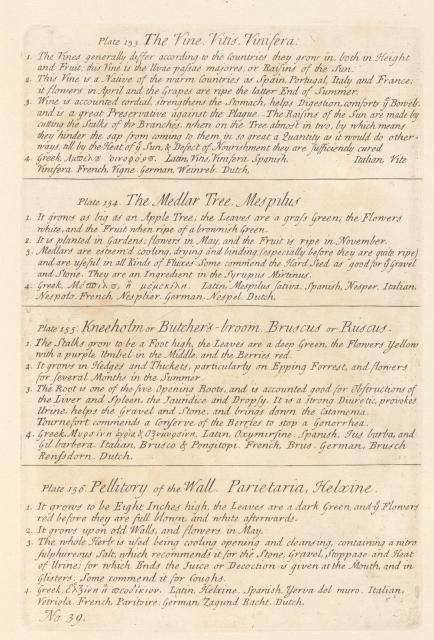 Plate 153 The Vine. Vitis, Vinifera.
1. The Vines generally differ according to the Countries they grow in, both in Height
and Fruit, this Vine is the Uvae passae majores, or Raisins of the Sun.
2. This Vine is a Native of the warm Countries as Spain, Portugal, Italy and France;
it flowers in April and the Grapes are ripe the latter End of Summer.
3. Wine is accounted cordial, strengthens the Stomach, helps Digestion, comforts ẙ Bowels
and is a great Preservative against the Plague. The Raisins of the Sun are made by
cutting the Stalks of the Branches, when on the Tree almost in two, by which means
they hinder the sap from coming to them in so great a Quantity as it would do other-
ways, till by the Heat of ẙ Sun, & Defect of Nourishment they are sufficiently cured
4. Greek, Ἄμπελος οινοφόρος. Latin, Vitis, Vinifera. Spanish. Italian, Vite
Vinifera. French, Vigne. German, Weinreb. Dutch.
Plate 154. The Medlar Tree. Mespilus
1. It grows as big as an Apple Tree; the Leaves are a grass Green, the Flowers
white, and the Fruit when ripe of a brownish Green.
2. It is planted in Gardens; flowers in May, and the Fruit is ripe in November.
3. Medlars are esteem'd cooling, drying and binding (especially before they are quite ripe)
and are useful in all Kinds of Fluxes. Some commend the Hard Seed as good for ẙ Gravel
and Stone. They are an Ingredient in the Syrupus Mirtinus.
4. Greek, Latin Mespilus sativa. Spanish, Nesper. Italian,
Nespolo. French, Nesplier. German, Nespel. Dutch.
Plate 155. Kneeholm or Butcher's-broom. Bruscus or Ruscus.
1. The Stalks grow to be a Foot high, the Leaves are a deep Green, the Flowers Yellow
with a purple Umbel in the Middle, and the Berries red.
2. It grows in Hedges and Thickets, particularly on Epping Forrest, and flowers
for several Months in the Summer.
3. The Root is one of the five Opening Roots, and is accounted good for Obstructions of
the Liver and Spleen, the Jaundice and Dropsy. It is a strong Diuretic, provokes
Urine, helps the Gravel and Stone, and brings down the Catamenia.
Tournefort commends a Conserve of the Berries to stop a Gonorrhea.
4. Greek, Latin, Oxymyrsine. Spanish, Jus barba, and
Gil barbera. Italian, Brusco & Pongitopi. French, Brus. German, Brusch
Renssdorn. Dutch.
Plate 156. Pellitory of the Wall. Parietaria, Helxine.
1. It grows to be Eight Inches high, the Leaves are a dark Green, and ẙ Flowers
red before they are full blown, and white afterwards.
2. It grows upon old Walls, and flowers in May.
3. The whole Herb is used being cooling opening and cleansing, containing a nitro
sulphureous Salt; which recommends it for the Stone, Gravel, Stoppage and Heat
of Urine; for which Ends the Juice or Decoction is given at the Mouth, and in
Glisters. Some commend it for Coughs.
4. Greek, Latin, Helxine. Spanish, Yerva del muro. Italian,
Vetriola. French, Paritoire. German, Tag und Nacht. Dutch.
No. 39.